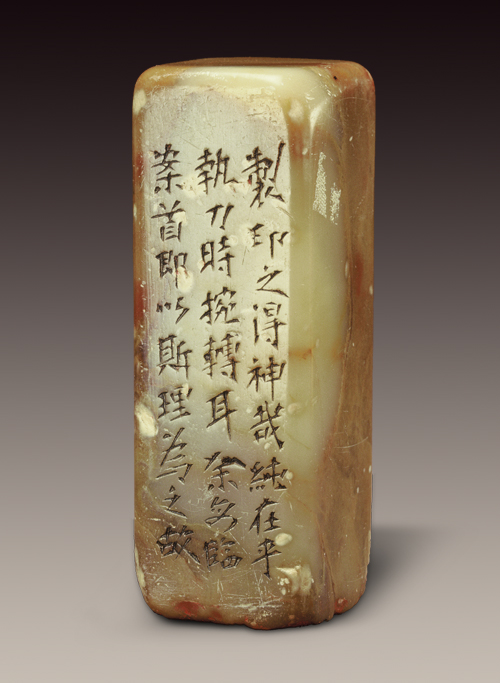 製印之得神哉純在乎
執刀時捥轉耳余每臨
案首即以斯理為之故